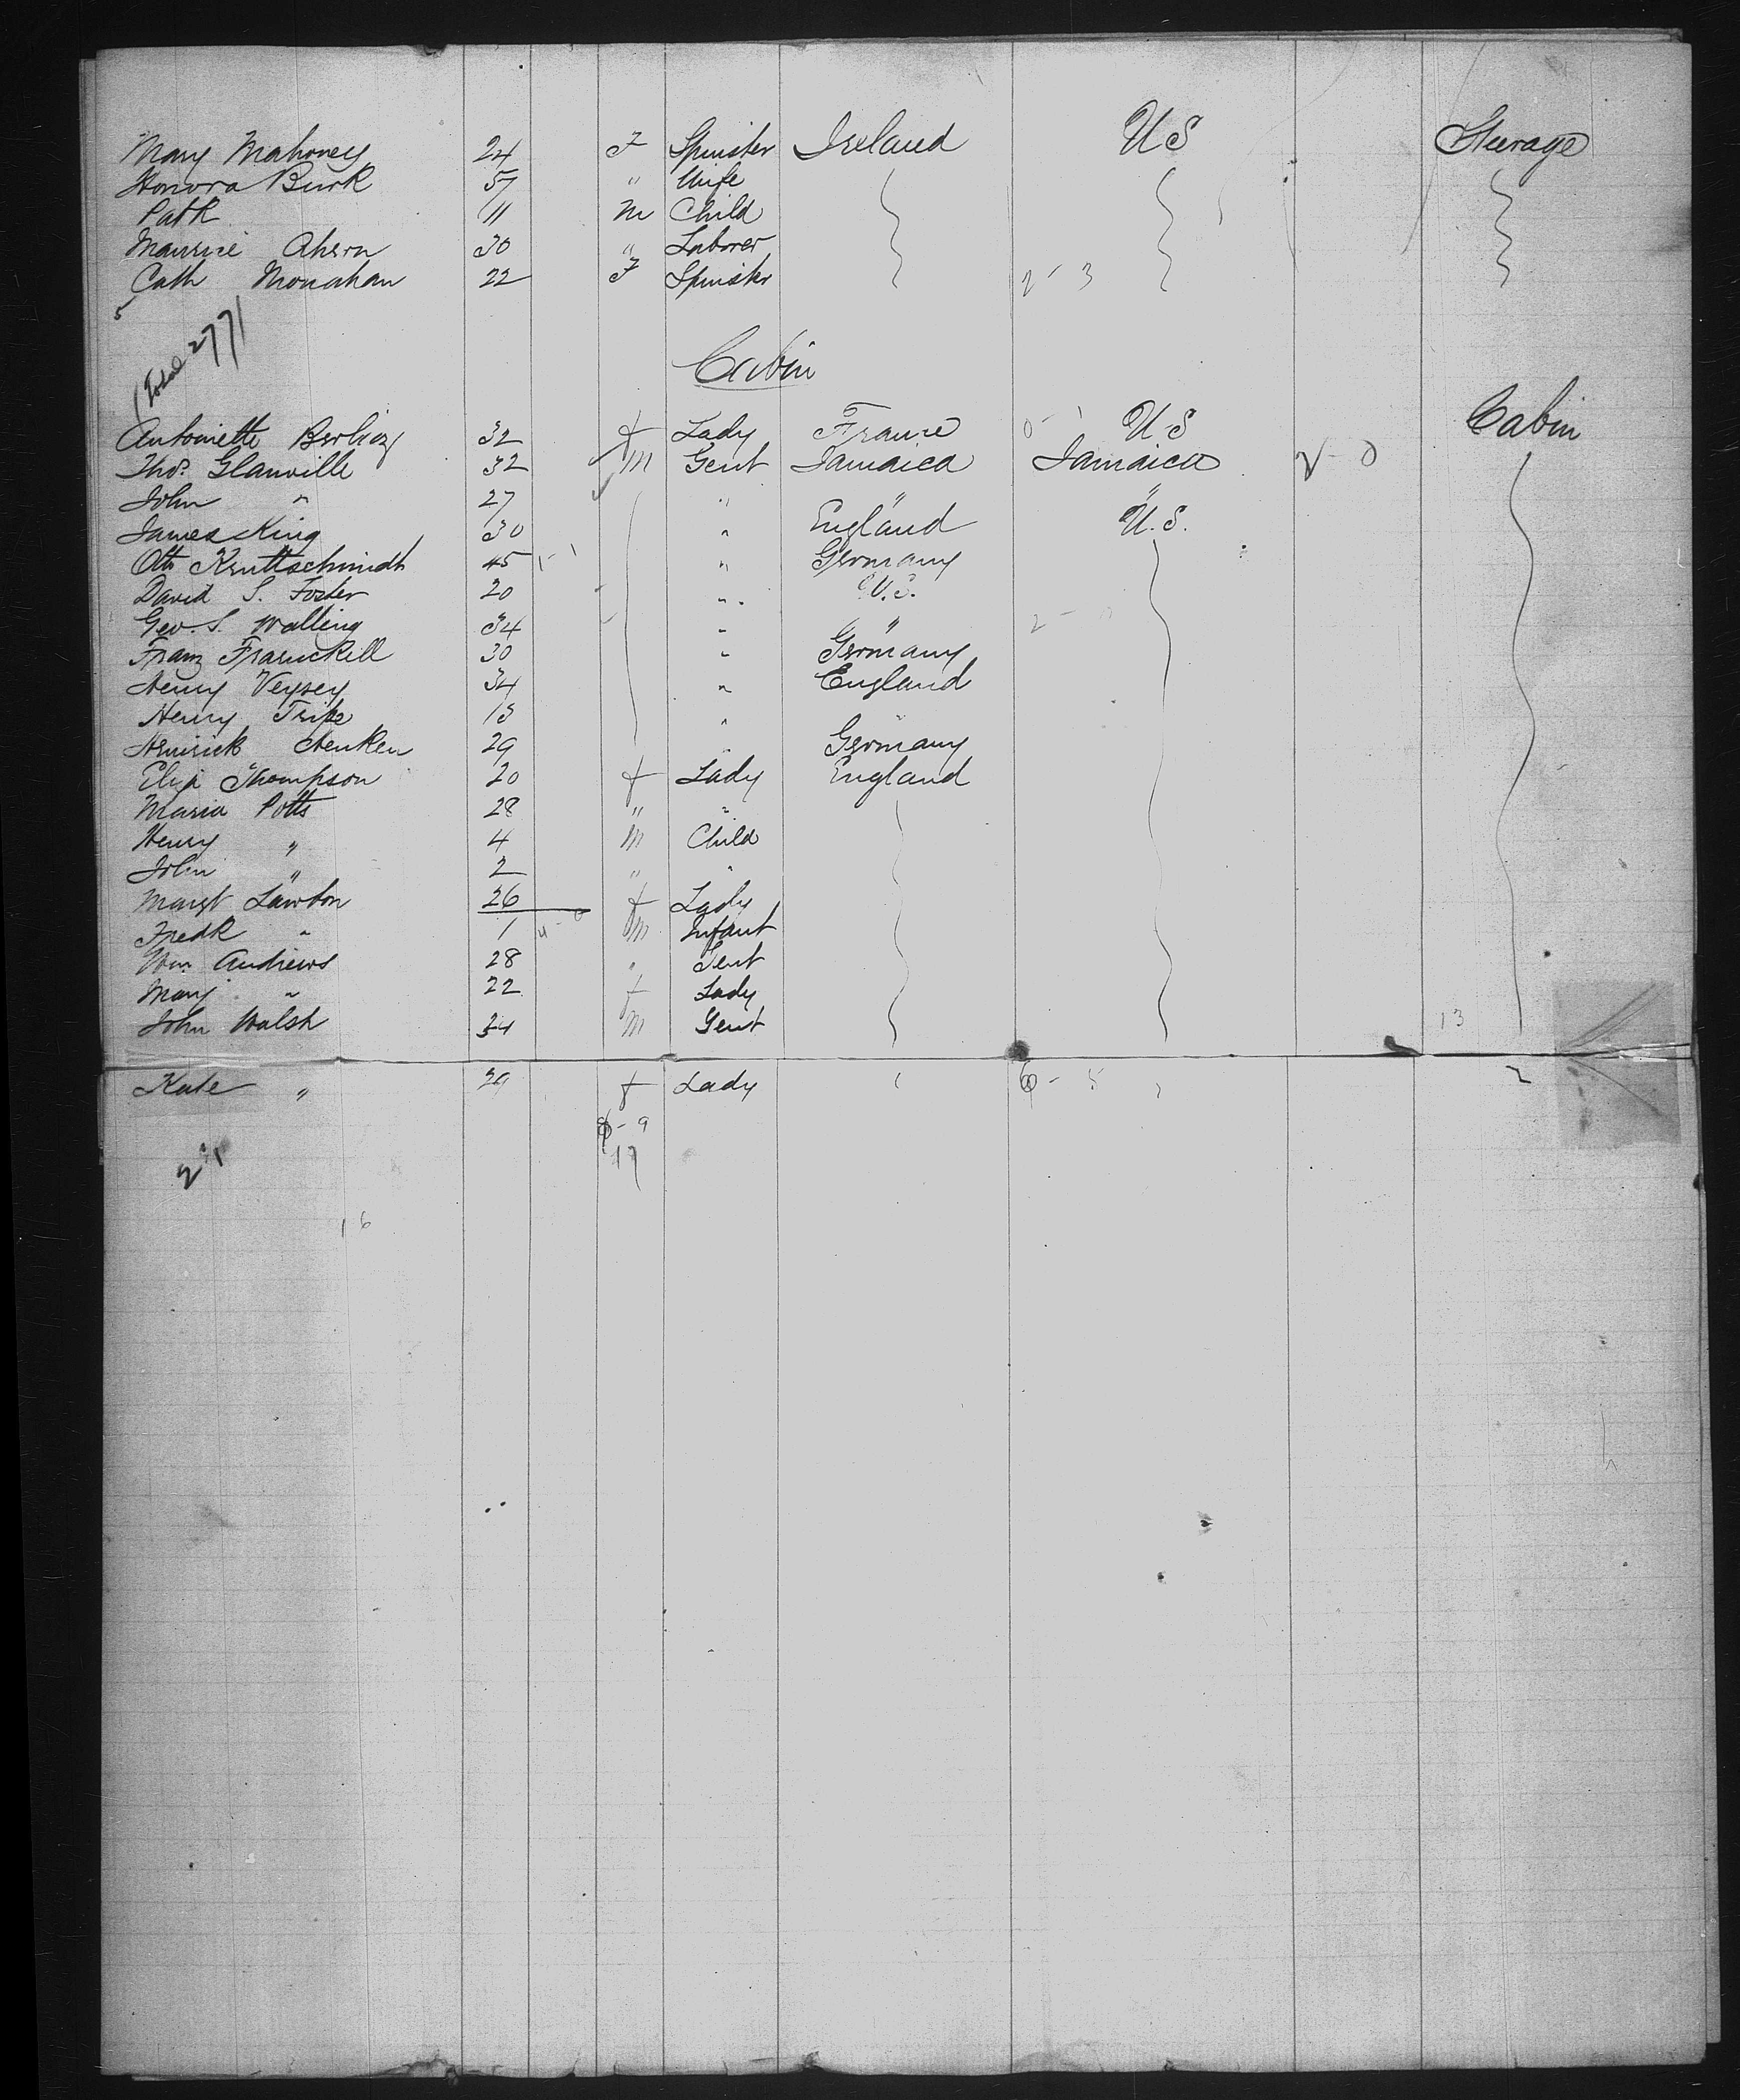 Mary Mahoney 24 F Spinster Ireland US Steerage
Honora Burk 57 " Wife
Patk 11 M Child
Maurice Ahern 30 " Laborer
Cath Monahan 22 F Spinster 2 - 3
5
Total 277
Cabin
Antoinette Berlioz 32 f Lady France 0 - 1 U S Cabin
Thos. Glanville 32 M Gent Jamaica Jamaica 2 - 0
John " 27 " " "
James King 30 " England U.S.
Otto Kruttschmidt 45 1 - 1 " Germany
David S. Foster 20 " U.S.
Geo. S. Walling 34 " " 2 - 0
Franz 30 " Germany
Henry Veysey 34 " England
Henry Tripe "
Henken 29 " Germany
Eliza Thompson 20 f Lady England
Maria Potts 28 " "
Henry " 4 M Child
John " 2 " "
Margt Lawton 26 f Lady
Fredk " 1 4 - 0 M Infant
Wm Andrews 28 " Gent
Mary " 22 f Lady
John Walsh 34 M Gent 13
Kate " 29 f Lady - 5 2
- 9
17
21
16